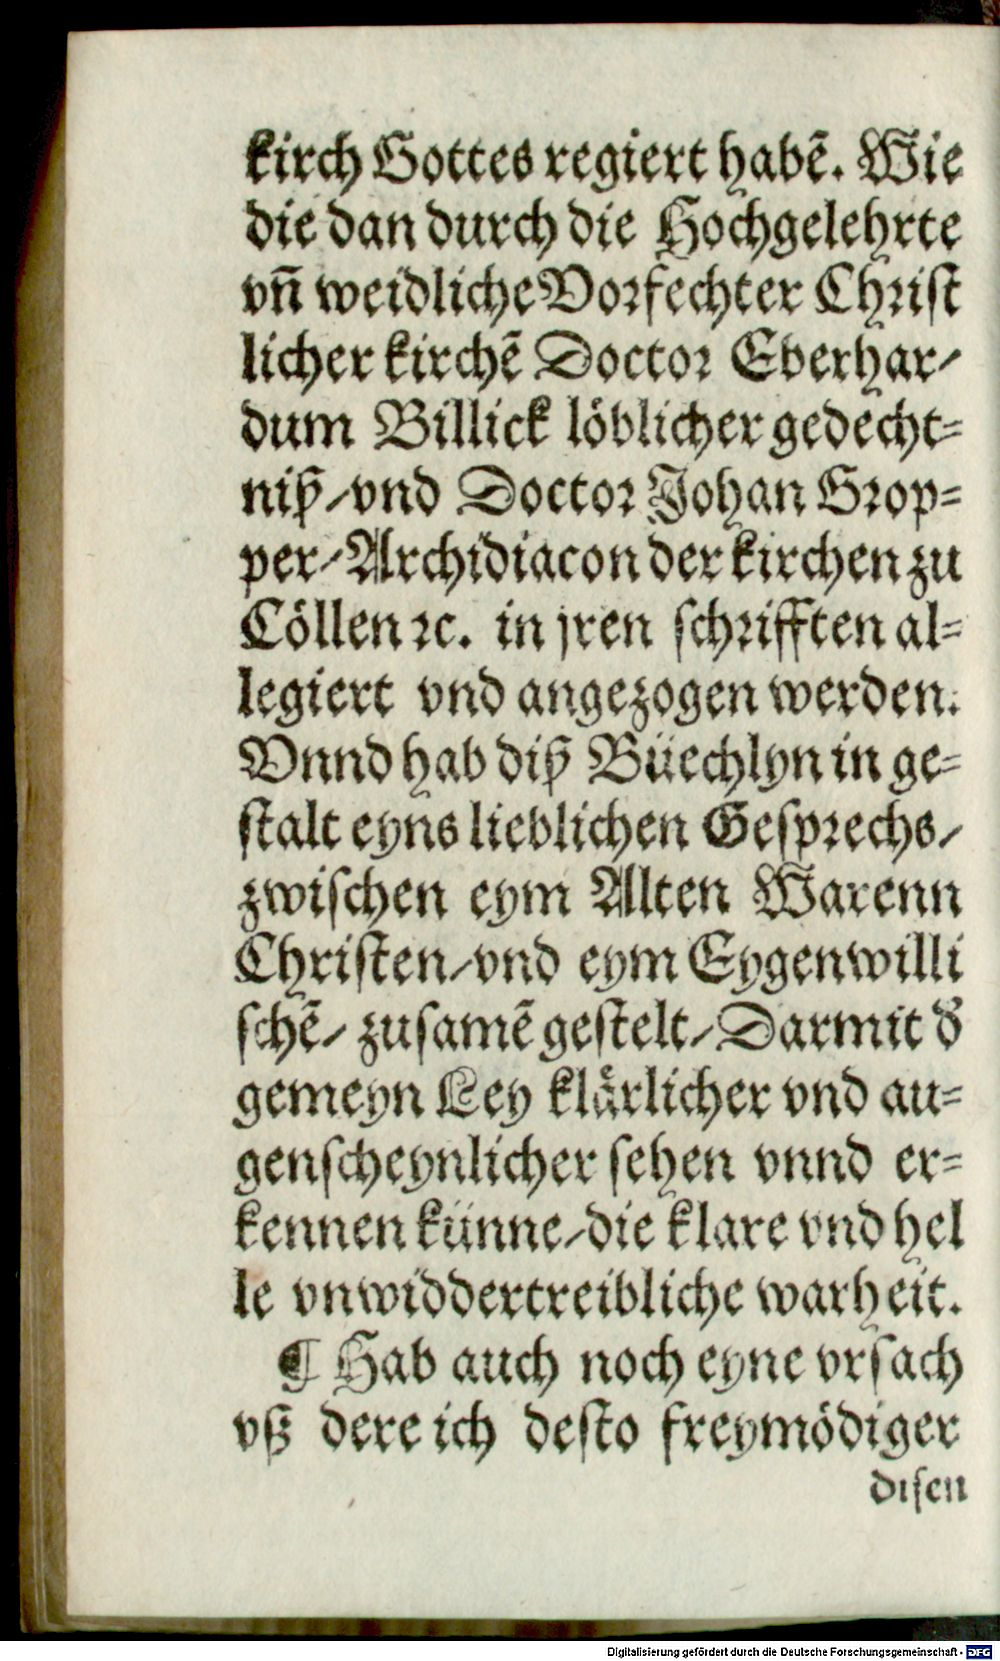 kirch Gottes regiert habē. Wie
die dan durch die Hochgelehrte
vn̄ weidliche Vorfechter Christ
licher kirchē Doctor Eberhar/
dum Billick löblicher gedecht=
niß/vnd Doctor Johan Grop=
per/Archidiacon der kirchen zu
Cöllen ꝛc. in jren schrifften al=
legiert vnd angezogen werden.
Vnnd hab diß Büechlyn in ge=
stalt eyns lieblichen Gesprechs/
zwischen eym Alten Warenn
Christen/vnd eym Eygenwilli
schē/ zusamē gestelt/Darmit d'
gemeyn Ley klärlicher vnd au=
genscheynlicher sehen vnnd er=
kennen künne/die klare vnd hel
le vnwiddertreibliche warheit.
¶ Hab auch noch eyne vrsach
vß dere ich desto freymödiger
disen
Digitalisierung gefördert durch die Deutsche Forschungsgemeinschaft - DFG